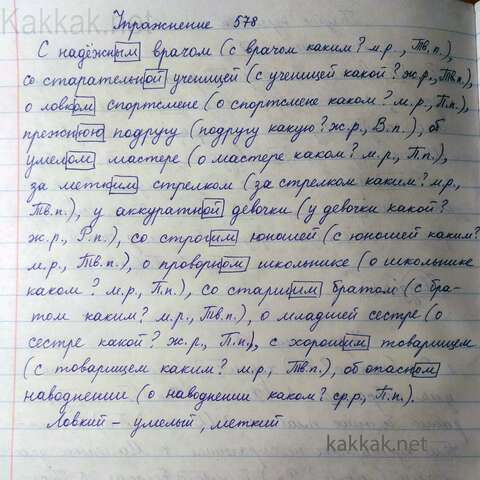 Kakkak.net
Упражнение 578
С надёжным врачом (с врачом каким? м.р., Тв.п.),
со старательной ученицей (с ученицей какой? ж.р., Тв.п.),
о ловком спортсмене (о спортсмене каком? м.р., П.п.),
прежнюю подругу (подругу какую? ж.р., В.п.), об
умелом мастере (о мастере каком? м.р., П.п.),
за метким стрелком (за стрелком каким? м.р.,
Тв.п.), у аккуратной девочки (у девочки какой?
ж.р., Р.п.), со строгим юношей (с юношей каким?
м.р., Тв.п.), о проворном школьнике (о школьнике
каком? м.р., П.п.), со старшим братом (с бра-
том каким? м.р., Тв.п.), о младшей сестре (о
сестре какой? ж.р., П.п.), с хорошим товарищем
(с товарищем каким? м.р., Тв.п.), об опасном
наводнении (о наводнении каком? ср.р., П.п.).
Ловкий - умелый, меткий
kakkak.net